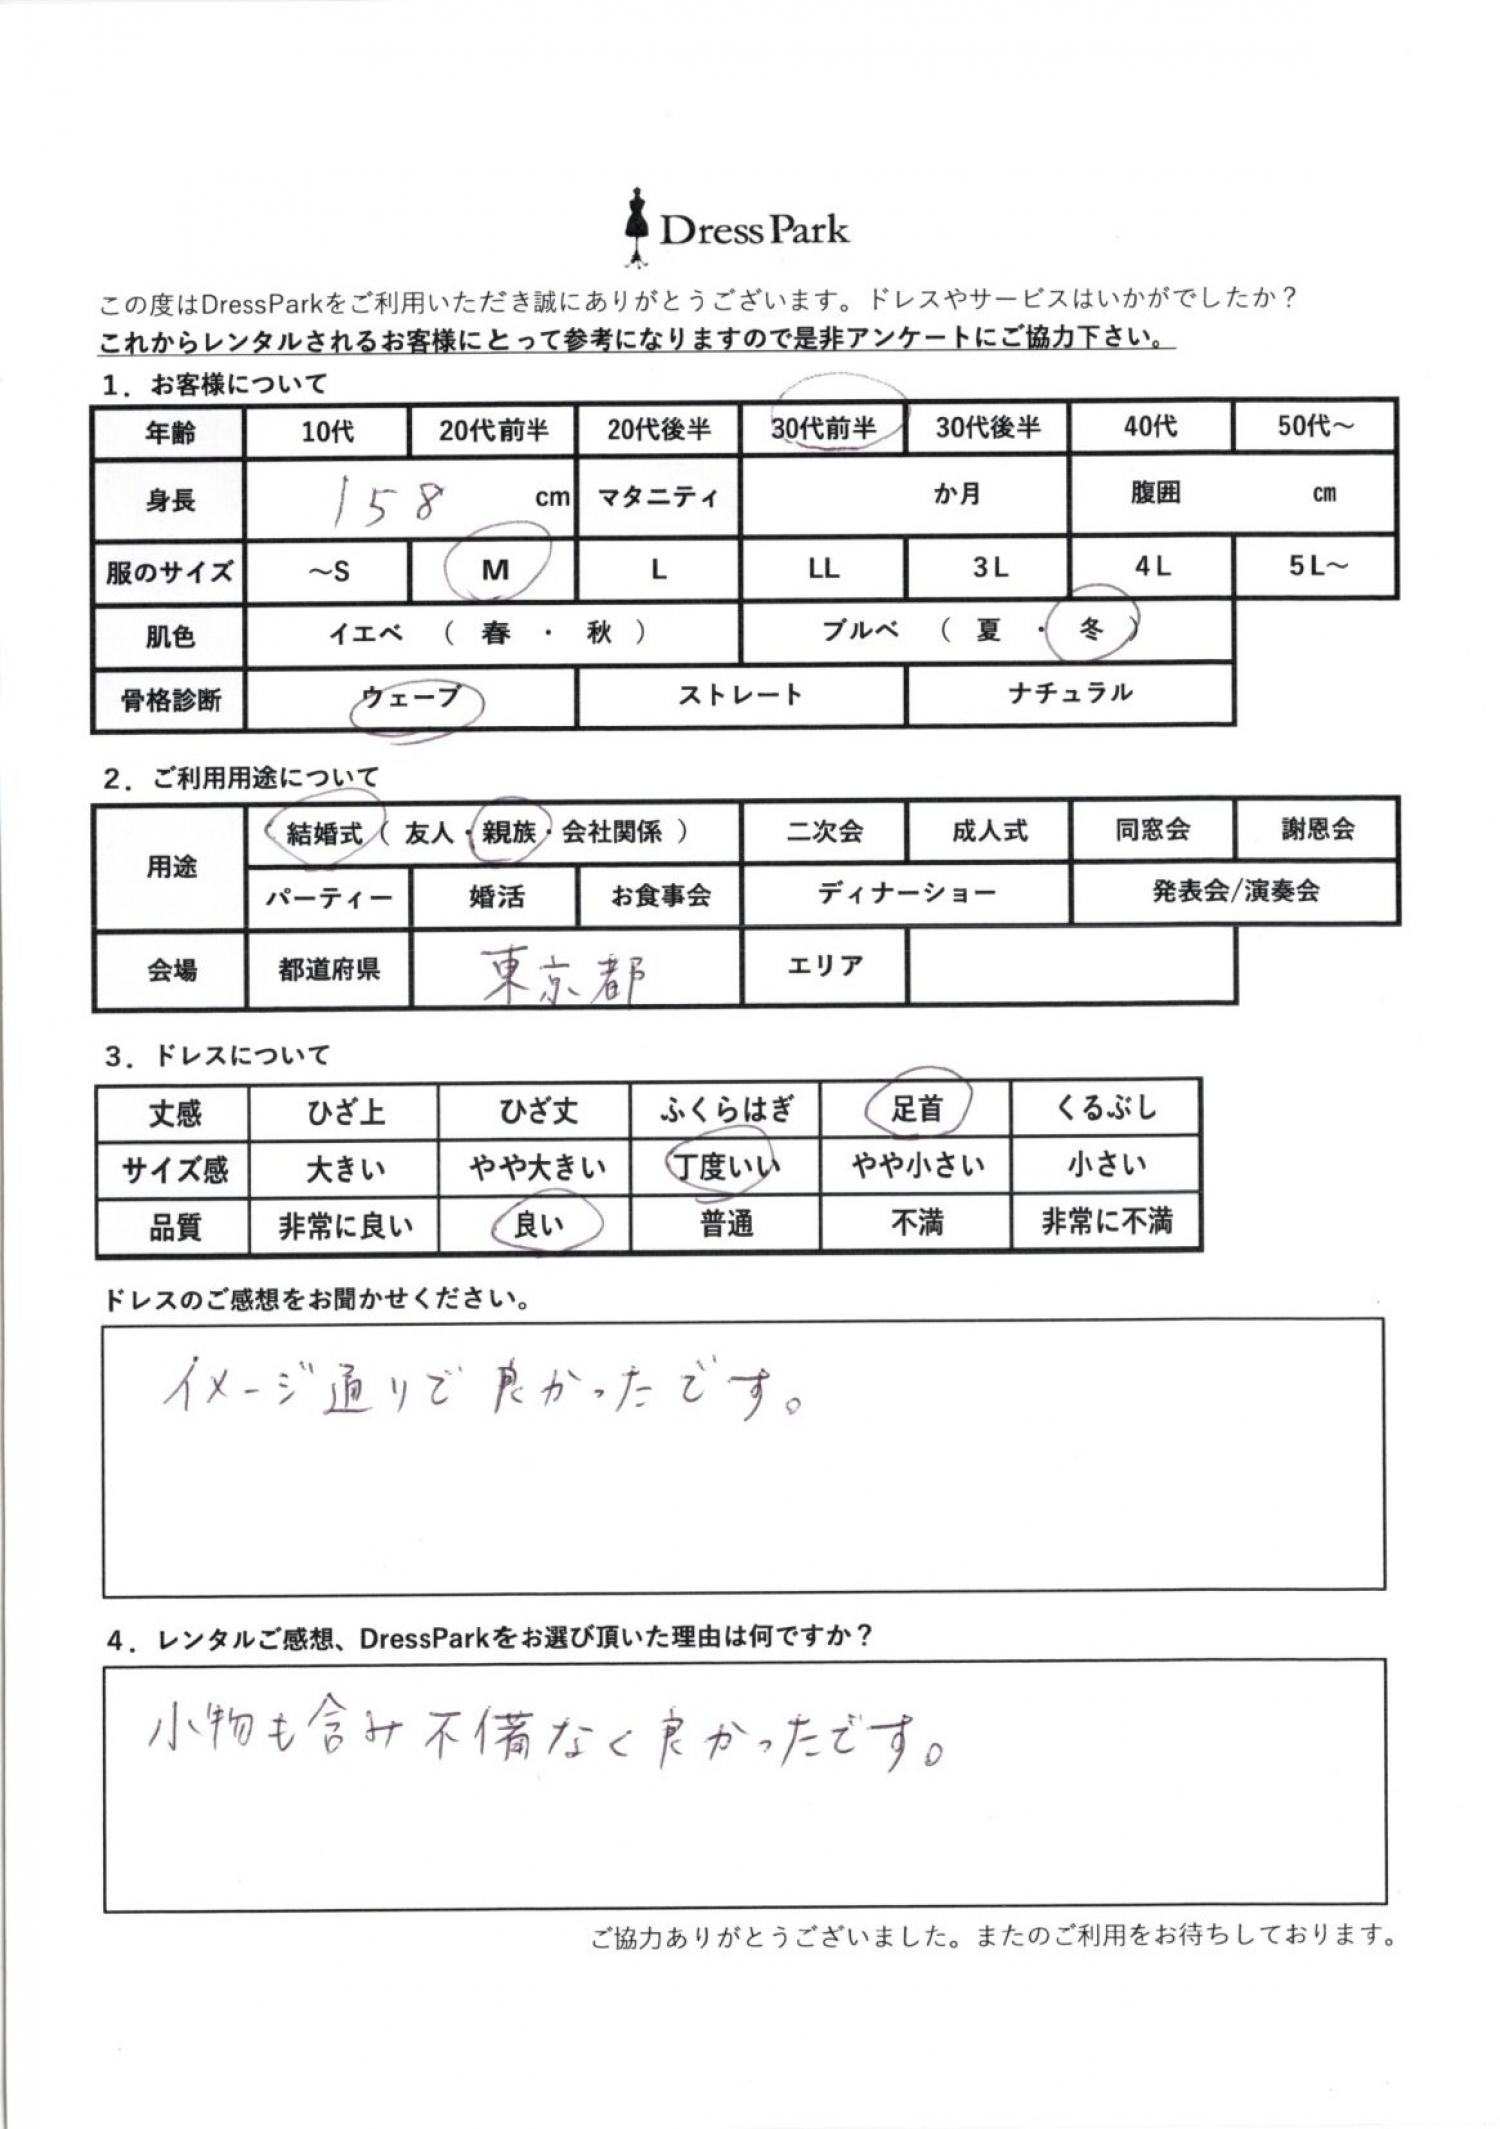 DressPark
この度はDressParkをご利用いただき誠にありがとうございます。ドレスやサービスはいかがでしたか？
これからレンタルされるお客様にとって参考になりますので是非アンケートにご協力下さい。
1．お客様について
年齢 10代 20代前半 20代後半 30代前半 30代後半 40代 50代～
身長 158 cm マタニティ か月 腹囲 cm
服のサイズ ～S M L LL 3L 4L 5L～
肌色 イエベ （ 春 ・ 秋 ） ブルべ （ 夏 ・ 冬 ）
骨格診断 ウェーブ ストレート ナチュラル
2．ご利用用途について
用途 結婚式（ 友人・親族・会社関係 ） 二次会 成人式 同窓会 謝恩会
パーティー 婚活 お食事会 ディナーショー 発表会/演奏会
会場 都道府県 東京都 エリア
3．ドレスについて
丈感 ひざ上 ひざ丈 ふくらはぎ 足首 くるぶし
サイズ感 大きい やや大きい 丁度いい やや小さい 小さい
品質 非常に良い 良い 普通 不満 非常に不満
ドレスのご感想をお聞かせください。
イメージ通りで良かったです。
4．レンタルご感想、DressParkをお選び頂いた理由は何ですか？
小物も含み不備なく良かったです。
ご協力ありがとうございました。またのご利用をお待ちしております。